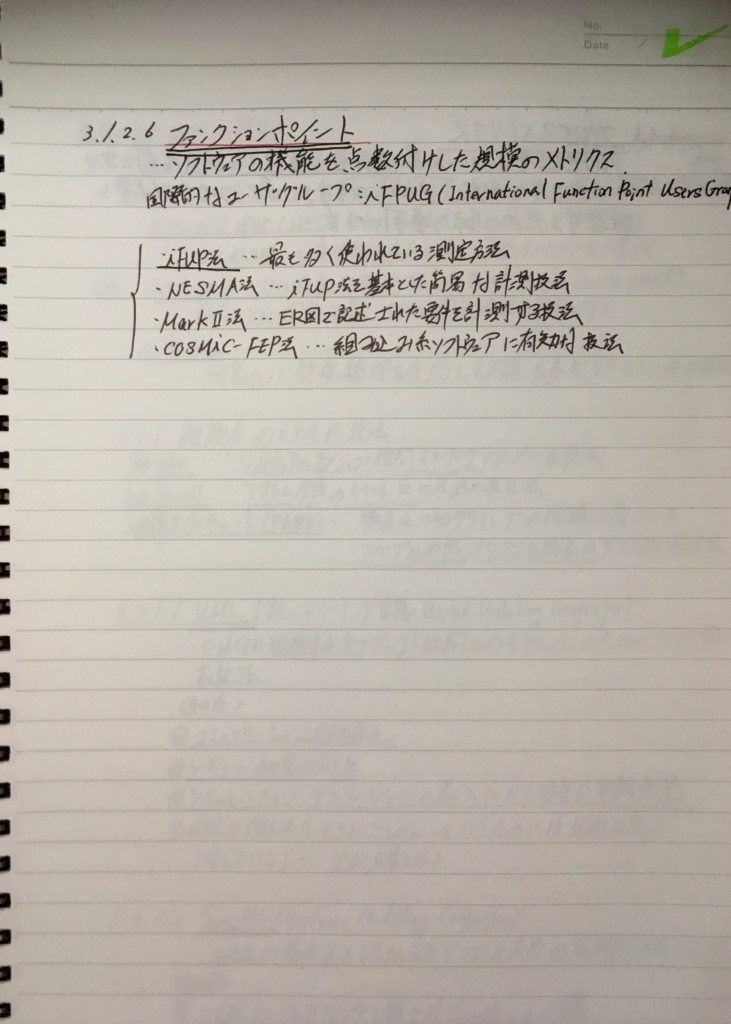 No.
Date /
3.1.2.6 ファンクションポイント
…ソフトウェアの機能を点数付けした規模のメトリクス.
国際的なユーザグループ:iFPUG(International Function Point Users Group
・iFUP法 … 最も多く使われている測定方法
・NESMA法 … iFUP法を基本とした簡易な計測技法
・MarkⅡ法 … ER図で記述された要件を計測する技法
・COSMiC-FFP法 … 組み込み系ソフトウェアに有効な技法